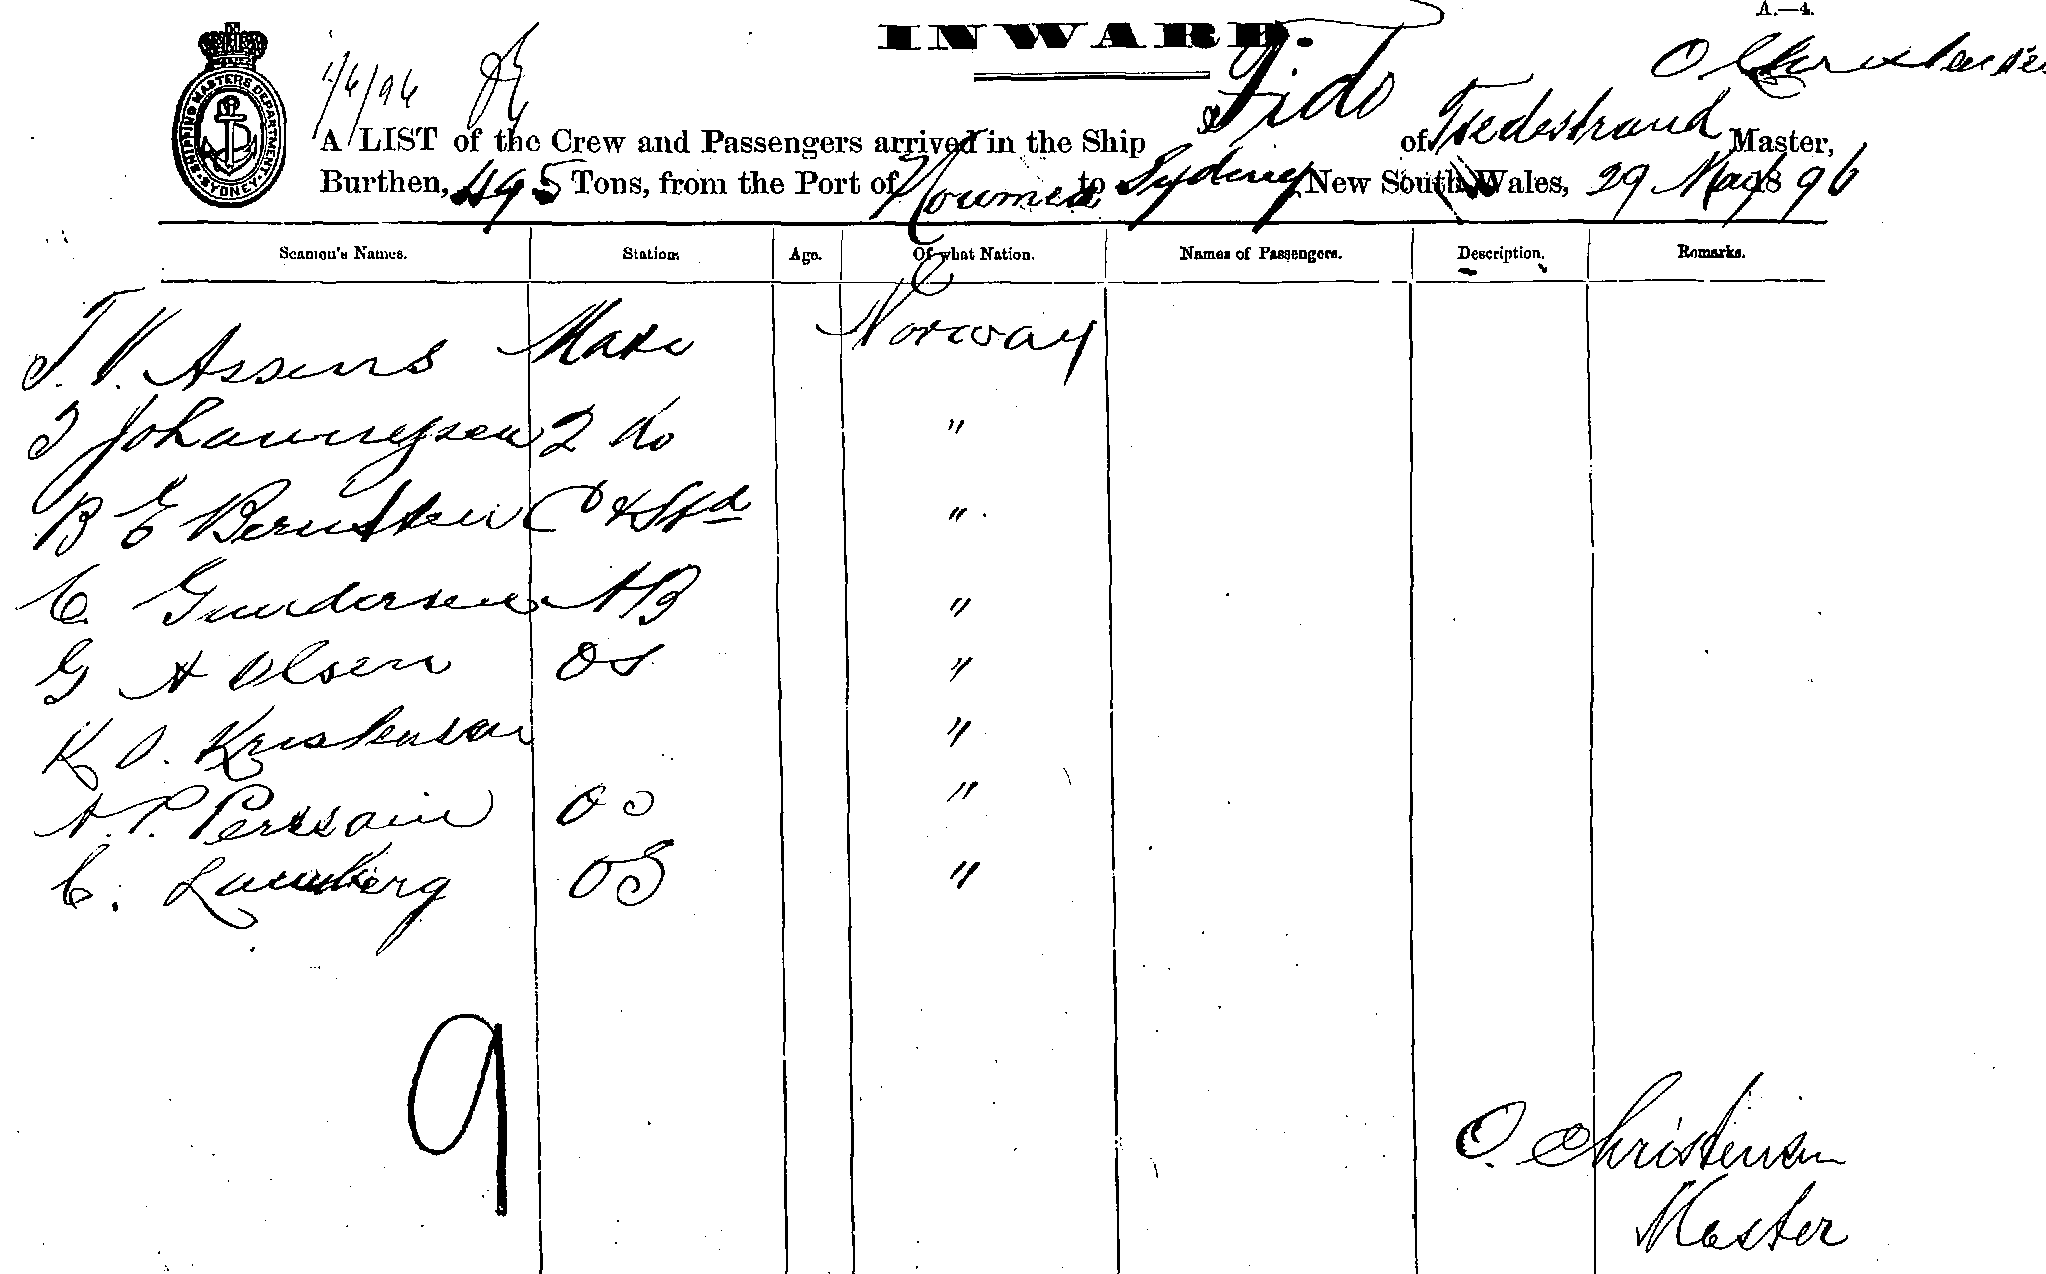 A.—4.
INWARD.
O Christensen
1/6/96
SHIPPING MASTERS DEPARTMENT SYDNEY
A LIST of the Crew and Passengers arrived in the Ship Fido of Tvedestrand Master,
Burthen, 495 Tons, from the Port of Noumea to Sydney New South Wales, 29 May 1896
Seamen's Names. Station. Age. Of what Nation. Names of Passengers. Description. Remarks.
T. V. Assens Mate Norway
J Johannessen 2 do "
B E Berntsen C & Std "
C. Gundersen AB "
G A Olsen OS "
K O. Kristensen "
A. P. Perssoin OS "
C. OS "
9
O. Christensen
Master